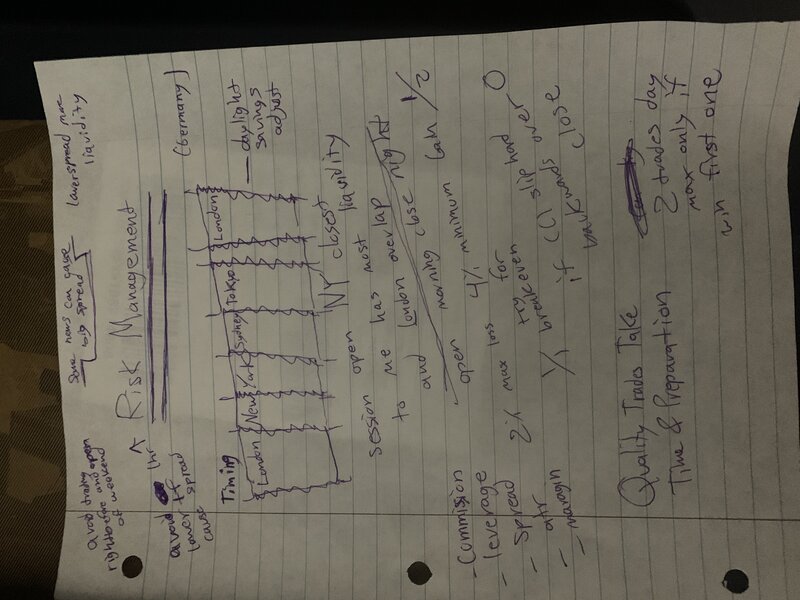 avoid trading
right before and open
of weekend
some news can cause
big spread
lower spread more
liquidity
^ Risk Management
avoid 1hr
lower tf
cause spread
(Germany)
Timing
London New York Sydney Tokyo London
— daylight
savings
adjust
NY closest
session open most liquidity
to me has overlap
and London overlap
morning close night
open 4% minimum 1/2
- Commission
- leverage
- spread
- atr
- margin
2% max loss try for
breakeven slip hard 0
1/1 if over
backwards close
Quality Trades Take
Time & Preparation
2 trades day
max only if
win first one